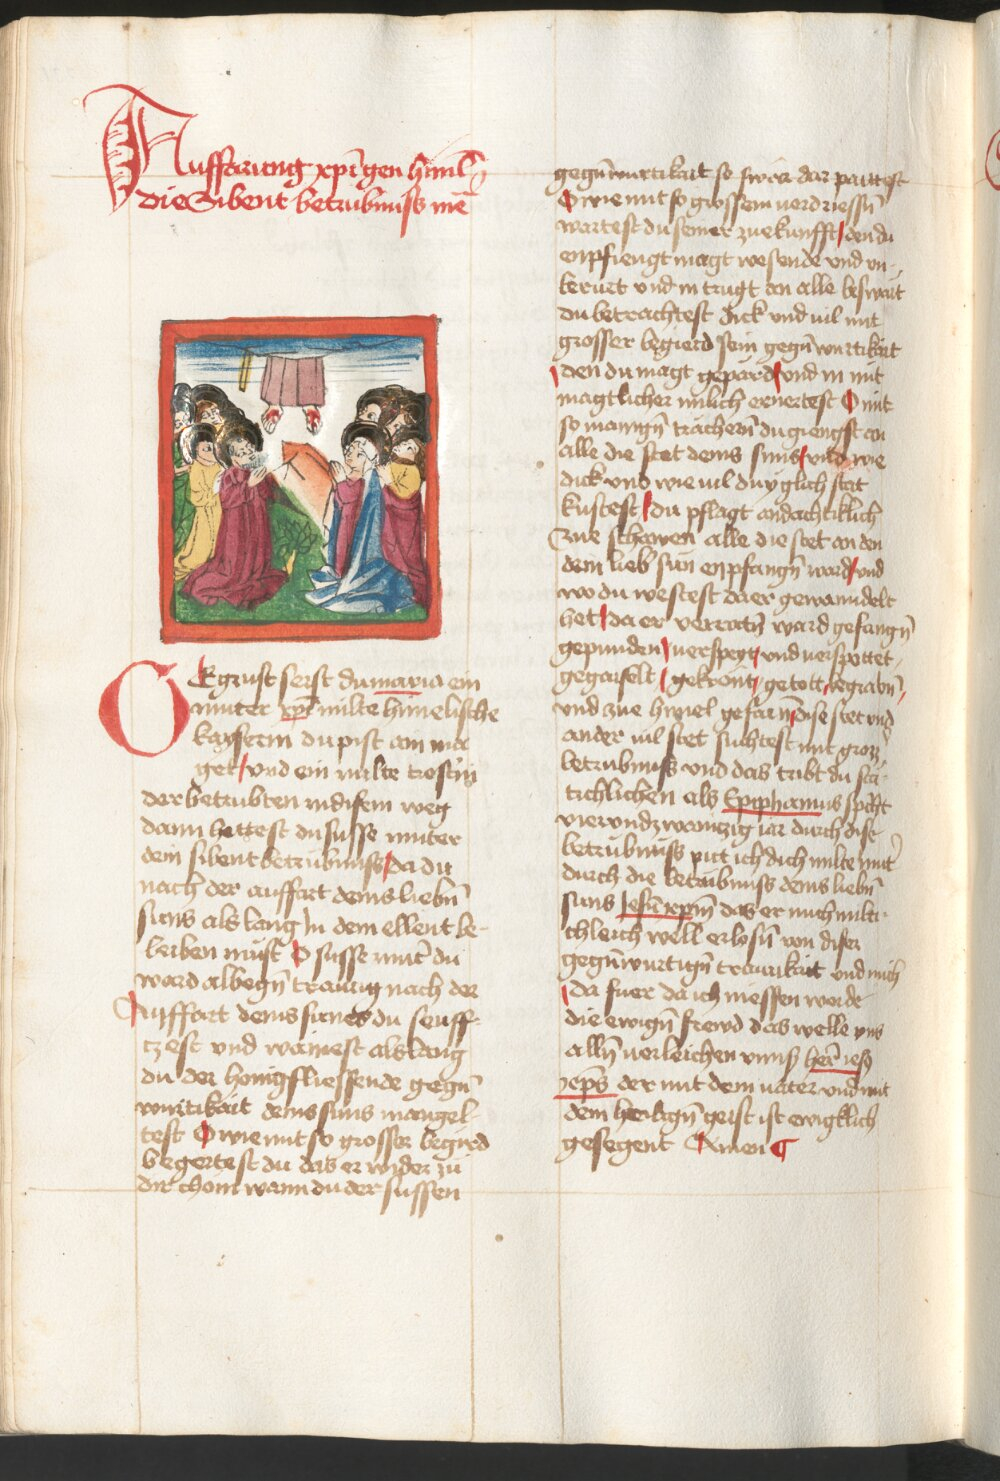 Auffarung xpi gen himl
die Sibent betrubnuss me
GEgrust seist du maria ein
muter xpi milte himelische
kayserin du pist am ma
get / vnd ein milte trosterin
der betrubten in disem weg
dann hettest du susse muter
dein sibent betrubnuss / da du
nach der auffart deins liebn
suns als lang in dem ellent be-
leiben must O susse mut du
ward albegn traurig nach der
Auffart deins sunes du seuff-
czest vnd wainest als lang
du der honigfliessende gegn
wurtikait deins suns mangel-
test O wie mit so grosser begird
begertest du das er wider zu
dir chom wann du der sussen
gegnwurtikait so swer dar paittest
O wie mit so grossem verdriessn
wartest du seiner zuekunfft / den du
enpfiengt magt wesende vnd vn-
beruert vnd in trugt on alle beswait
du betrachtest dick vnd vil mit
grosser begierd sein gegnwurtikait
den du magt gepard vnd in mit
magtlicher milich ernertest O mit
so manngn trachern du giengst an
alle die stet deins suns / vnd wie
dick vnd wie vil du yglich stat
kustest / du pflagt andachtiklich
Zue schawen alle die stet an den
dein lieb sun enpfangn ward / vnd
wo du westest da er gewanndelt
het / da er verratn ward gefangn
gepunden / verspeyt / vnd verspottet
gegaiselt / gekront / getott / begrabn /
vnd zue himel gefarn / dise stet vnd
ander vil stet suchtest mit gross
betrubnuss vnd das tribt du sta-
tichlichen als Epiphanius spricht
vierundzwainczig iar durch dise
betrubnuss pitt ich dich milte mut
durch die betrubnuss deins liebn
suns Jesu xpm das er mich milti-
chleich well erlosn von diser
gegnwurtign traurikait vnd mich
da fuer da ich niessen werde
die ewign frewd das welle vns
alln verleichen vnnser her iesus
xps der mit dem vater vnd mit
dem heilign geist ist ewigklich
gesegent Amen